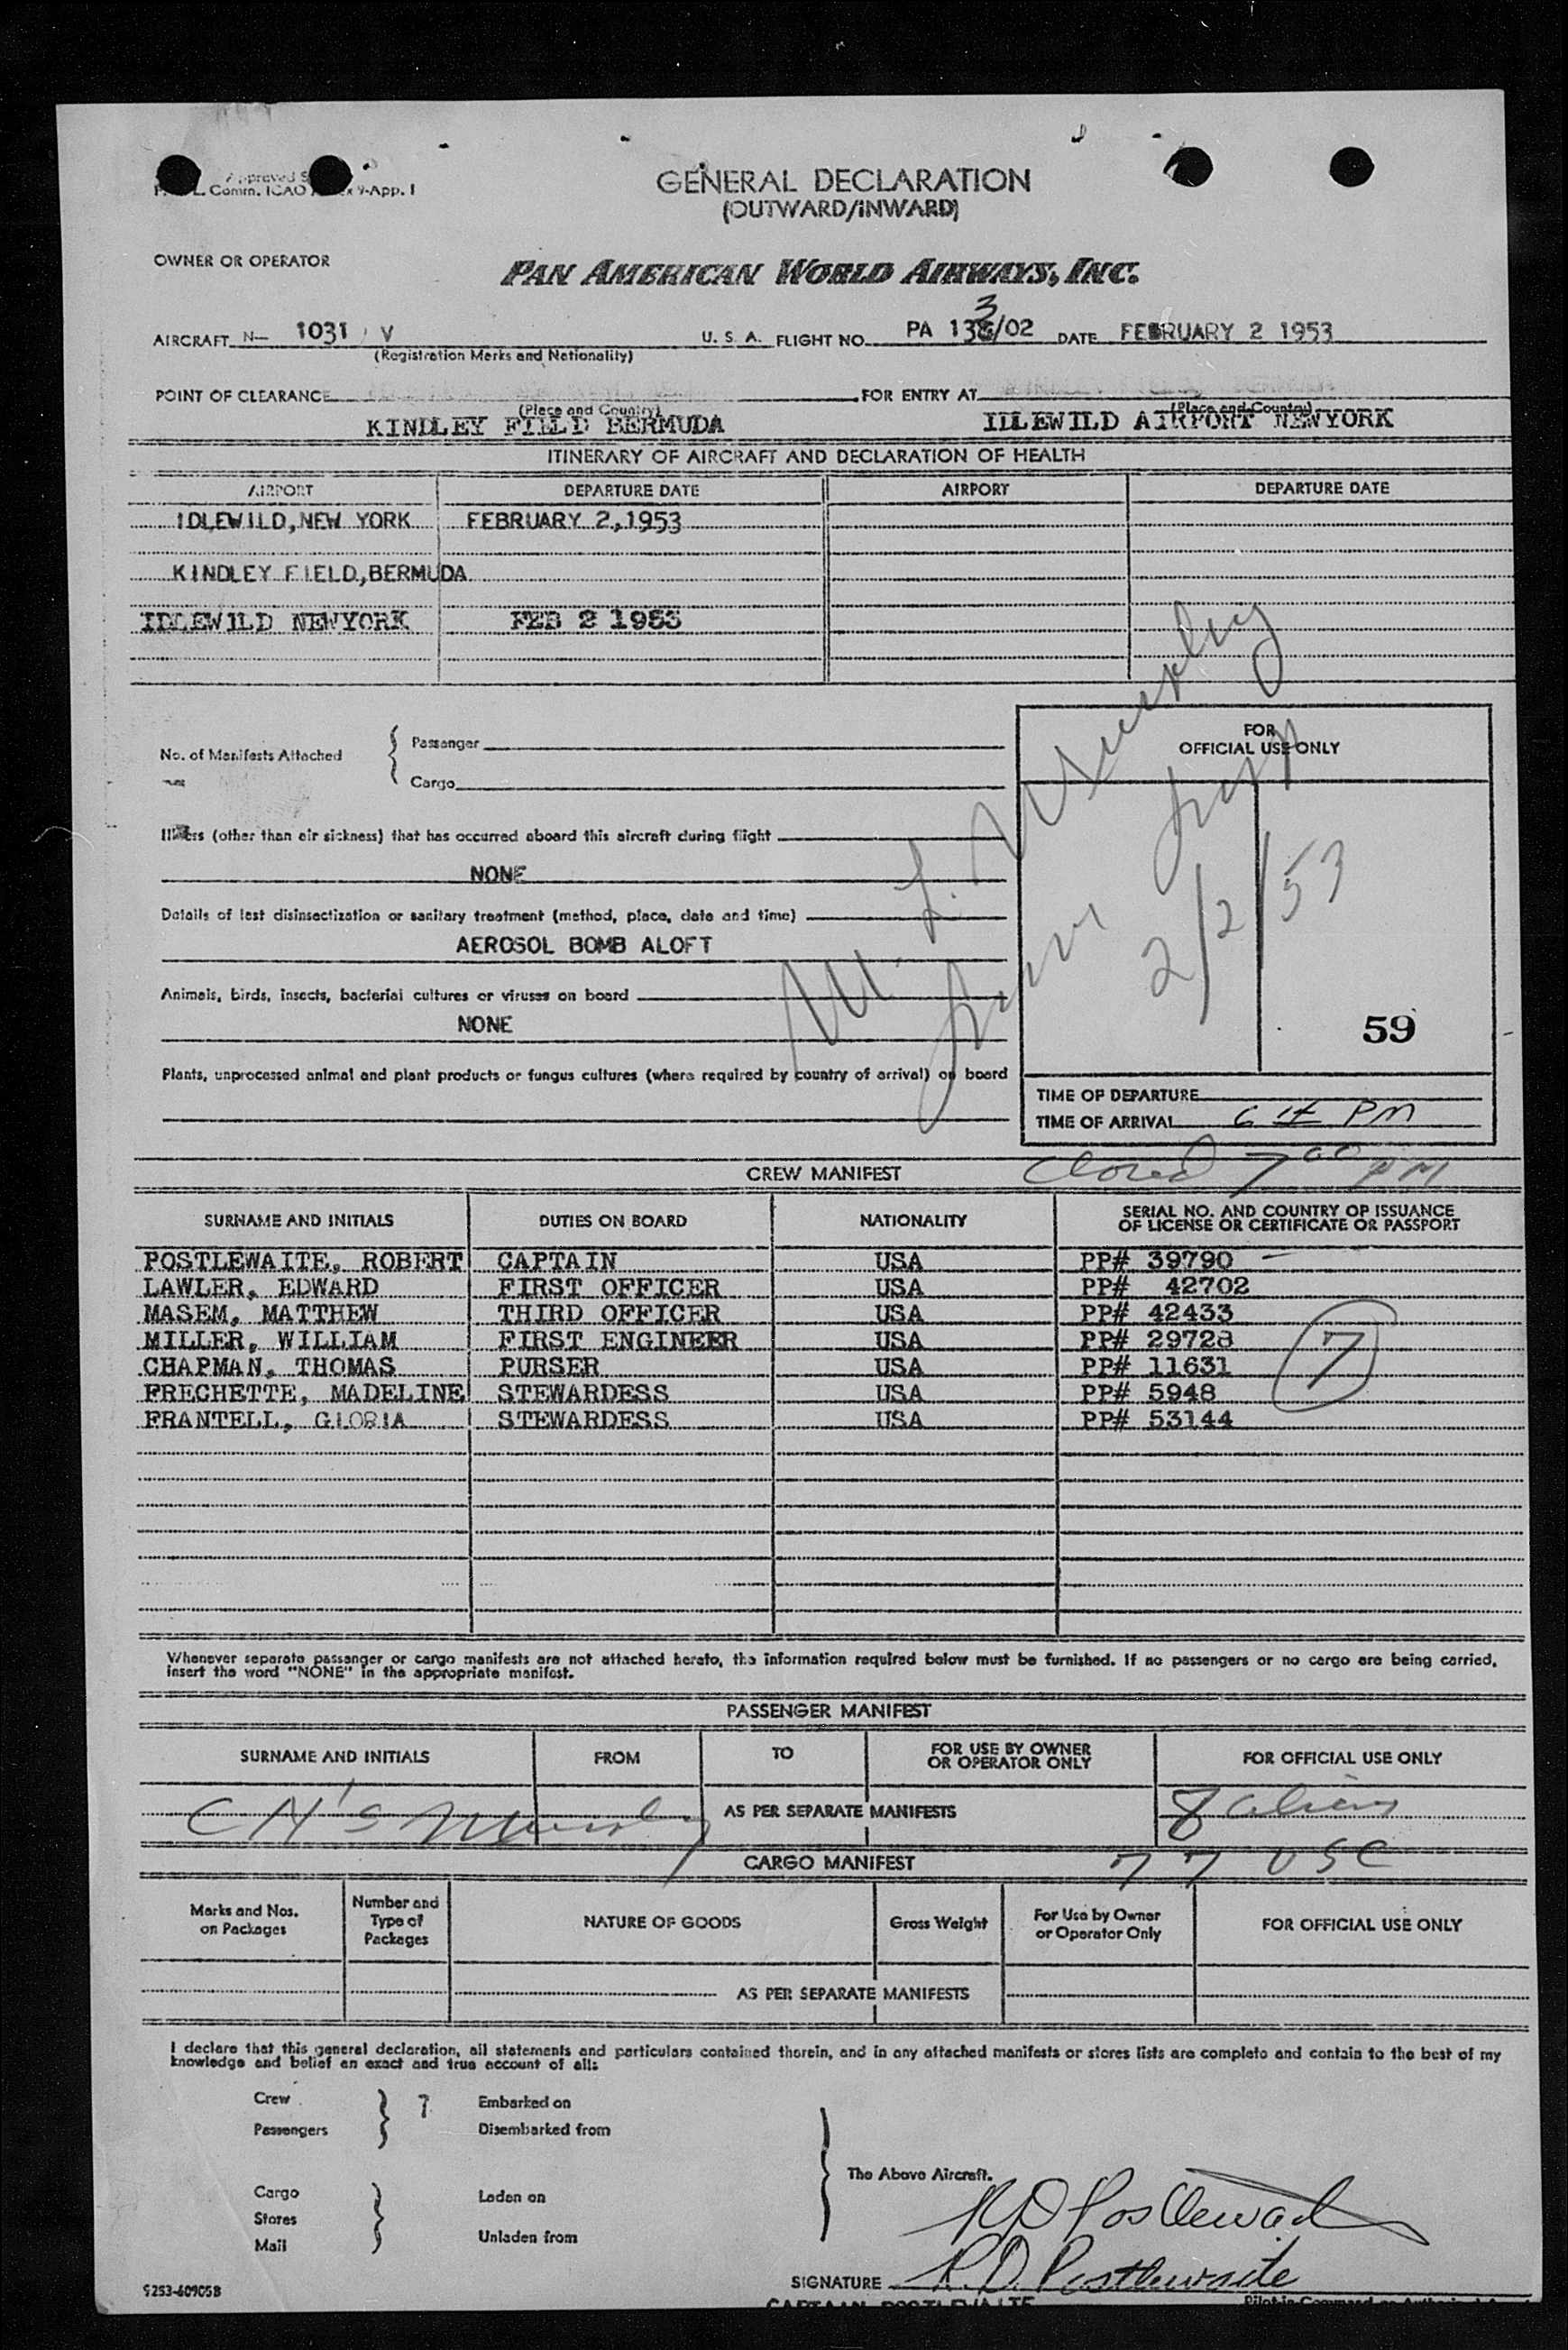 Approved
Comm. ICAO 9-App. I
GENERAL DECLARATION
(OUTWARD/INWARD)
OWNER OR OPERATOR
PAN AMERICAN WORLD AIRWAYS, INC.
AIRCRAFT N- 1031 V U. S. A. FLIGHT NO. PA 133/02 DATE FEBRUARY 2 1953
(Registration Marks and Nationality)
POINT OF CLEARANCE FOR ENTRY AT
(Place and Country) (Place and Country)
KINDLEY FIELD BERMUDA IDLEWILD AIRPORT NEWYORK
ITINERARY OF AIRCRAFT AND DECLARATION OF HEALTH
AIRPORT DEPARTURE DATE AIRPORT DEPARTURE DATE
IDLEWILD,NEW YORK FEBRUARY 2,1953
KINDLEY FIELD,BERMUDA
IDLEWILD NEWYORK FEB 2 1953
FOR
OFFICIAL USE ONLY
No. of Manifests Attached { Passenger
Cargo
Illness (other than air sickness) that has occurred aboard this aircraft during flight
NONE
Details of last disinsectization or sanitary treatment (method, place, date and time)
AEROSOL BOMB ALOFT
2/2/53
Animals, birds, insects, bacterial cultures or viruses on board
NONE
59
Plants, unprocessed animal and plant products or fungus cultures (where required by country of arrival) on board
TIME OF DEPARTURE
TIME OF ARRIVAL PM
Closed 7 00 PM
CREW MANIFEST
SURNAME AND INITIALS DUTIES ON BOARD NATIONALITY SERIAL NO. AND COUNTRY OF ISSUANCE
OF LICENSE OR CERTIFICATE OR PASSPORT
POSTLEWAITE, ROBERT CAPTAIN USA PP# 39790
LAWLER, EDWARD FIRST OFFICER USA PP# 42702
MASEM, MATTHEW THIRD OFFICER USA PP# 42433
MILLER, WILLIAM FIRST ENGINEER USA PP# 29728
CHAPMAN, THOMAS PURSER USA PP# 11631
FRECHETTE, MADELINE STEWARDESS USA PP# 5948
FRANTELL, GLORIA STEWARDESS USA PP# 53144
7
Whenever separate passenger or cargo manifests are not attached hereto, the information required below must be furnished. If no passengers or no cargo are being carried,
insert the word "NONE" in the appropriate manifest.
PASSENGER MANIFEST
SURNAME AND INITIALS FROM TO FOR USE BY OWNER
OR OPERATOR ONLY FOR OFFICIAL USE ONLY
AS PER SEPARATE MANIFESTS 8 aliens
77 USC
CARGO MANIFEST
Marks and Nos.
on Packages Number and
Type of
Packages NATURE OF GOODS Gross Weight For Use by Owner
or Operator Only FOR OFFICIAL USE ONLY
AS PER SEPARATE MANIFESTS
I declare that this general declaration, all statements and particulars contained therein, and in any attached manifests or stores lists are complete and contain to the best of my
knowledge and belief an exact and true account of all:
Crew 7 Embarked on
Passengers Disembarked from
The Above Aircraft.
Cargo Laden on
Stores
Mail Unladen from
R D Postlewaite
SIGNATURE R.D. Postlewaite
9253-60905B
CAPTAIN POSTLEWAITE Pilot-in-Command